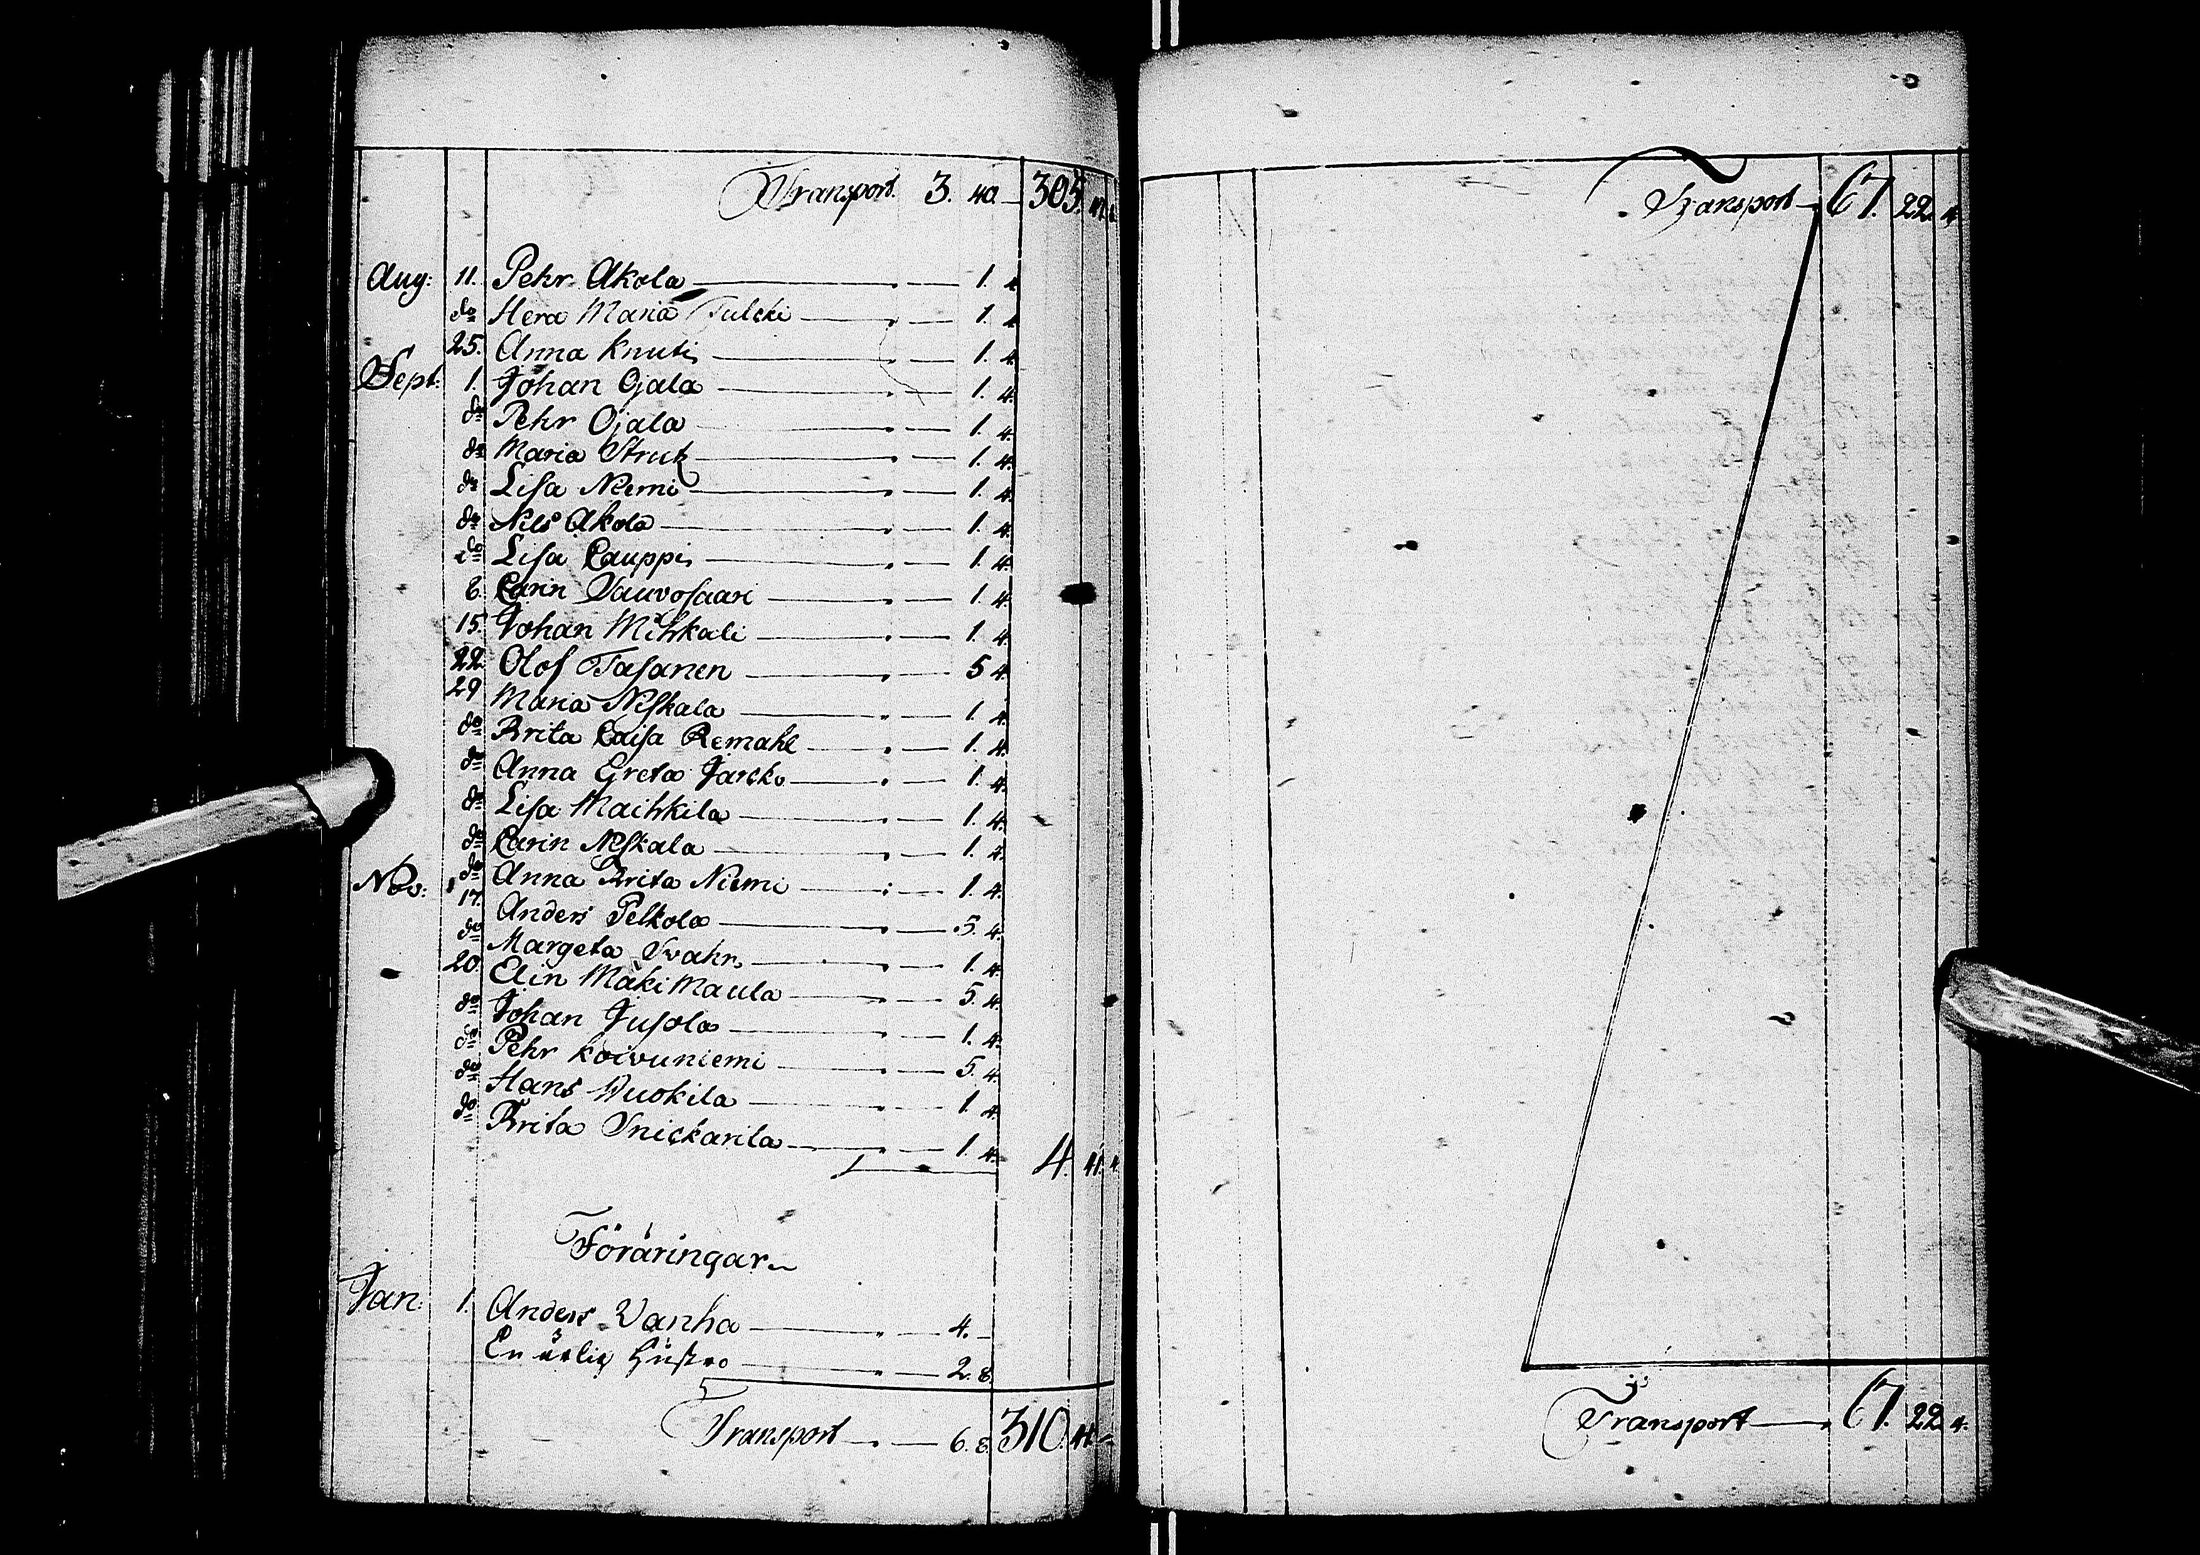 Transport. 3. 40. — 305. 41.
Aug: 11. Pehr Akola — „ — 1. 4.
do Hera Maria Tulcki — „ — 1. 4.
25. Anna Knuti — „ — 1. 4.
Sept: 1. Johan Ojala — „ — 1. 4.
do Pehr Ojala — „ — 1. 4.
do Maria Strutz — „ — 1. 4.
do Lisa Niemi — „ — 1. 4.
do Nils Akola — „ — 1. 4.
do Lisa Cauppi — „ — 1. 4.
8. Carin Vauvosaari — „ — 1. 4.
15. Johan Mihkali — „ — 1. 4.
22. Olof Tasanen — „ — 5 4.
29 Maria Niskala — „ — 1. 4.
do Brita Caisa Remahl — „ — 1. 4.
do Anna Greta Jarcko — „ — 1. 4.
do Lisa Maihkila — „ — 1. 4.
do Carin Niskala — „ — 1. 4.
do Anna Brita Niemi — „ — 1. 4.
Nov: 17. Anders Pelkola — „ — 5. 4.
do Margeta Svahn — „ — 1. 4.
20. Elin Mäki Maula — „ — 5. 4.
do Johan Jusola — „ — 1. 4.
do Pehr Koivuniemi — „ — 5. 4.
do Hans Wuokila — „ — 1. 4.
do Brita Snickarila — „ — 1. 4.
4. 41. 4.
Föräringar
Jan: 1. Anders Wanha — „ — 4. —
En ärlig Hustro — „ — 2. 8.
Transport — „ — 6. 8. 310. 41.
Transport — 67. 22. 4.
Transport — 67. 22. 4.